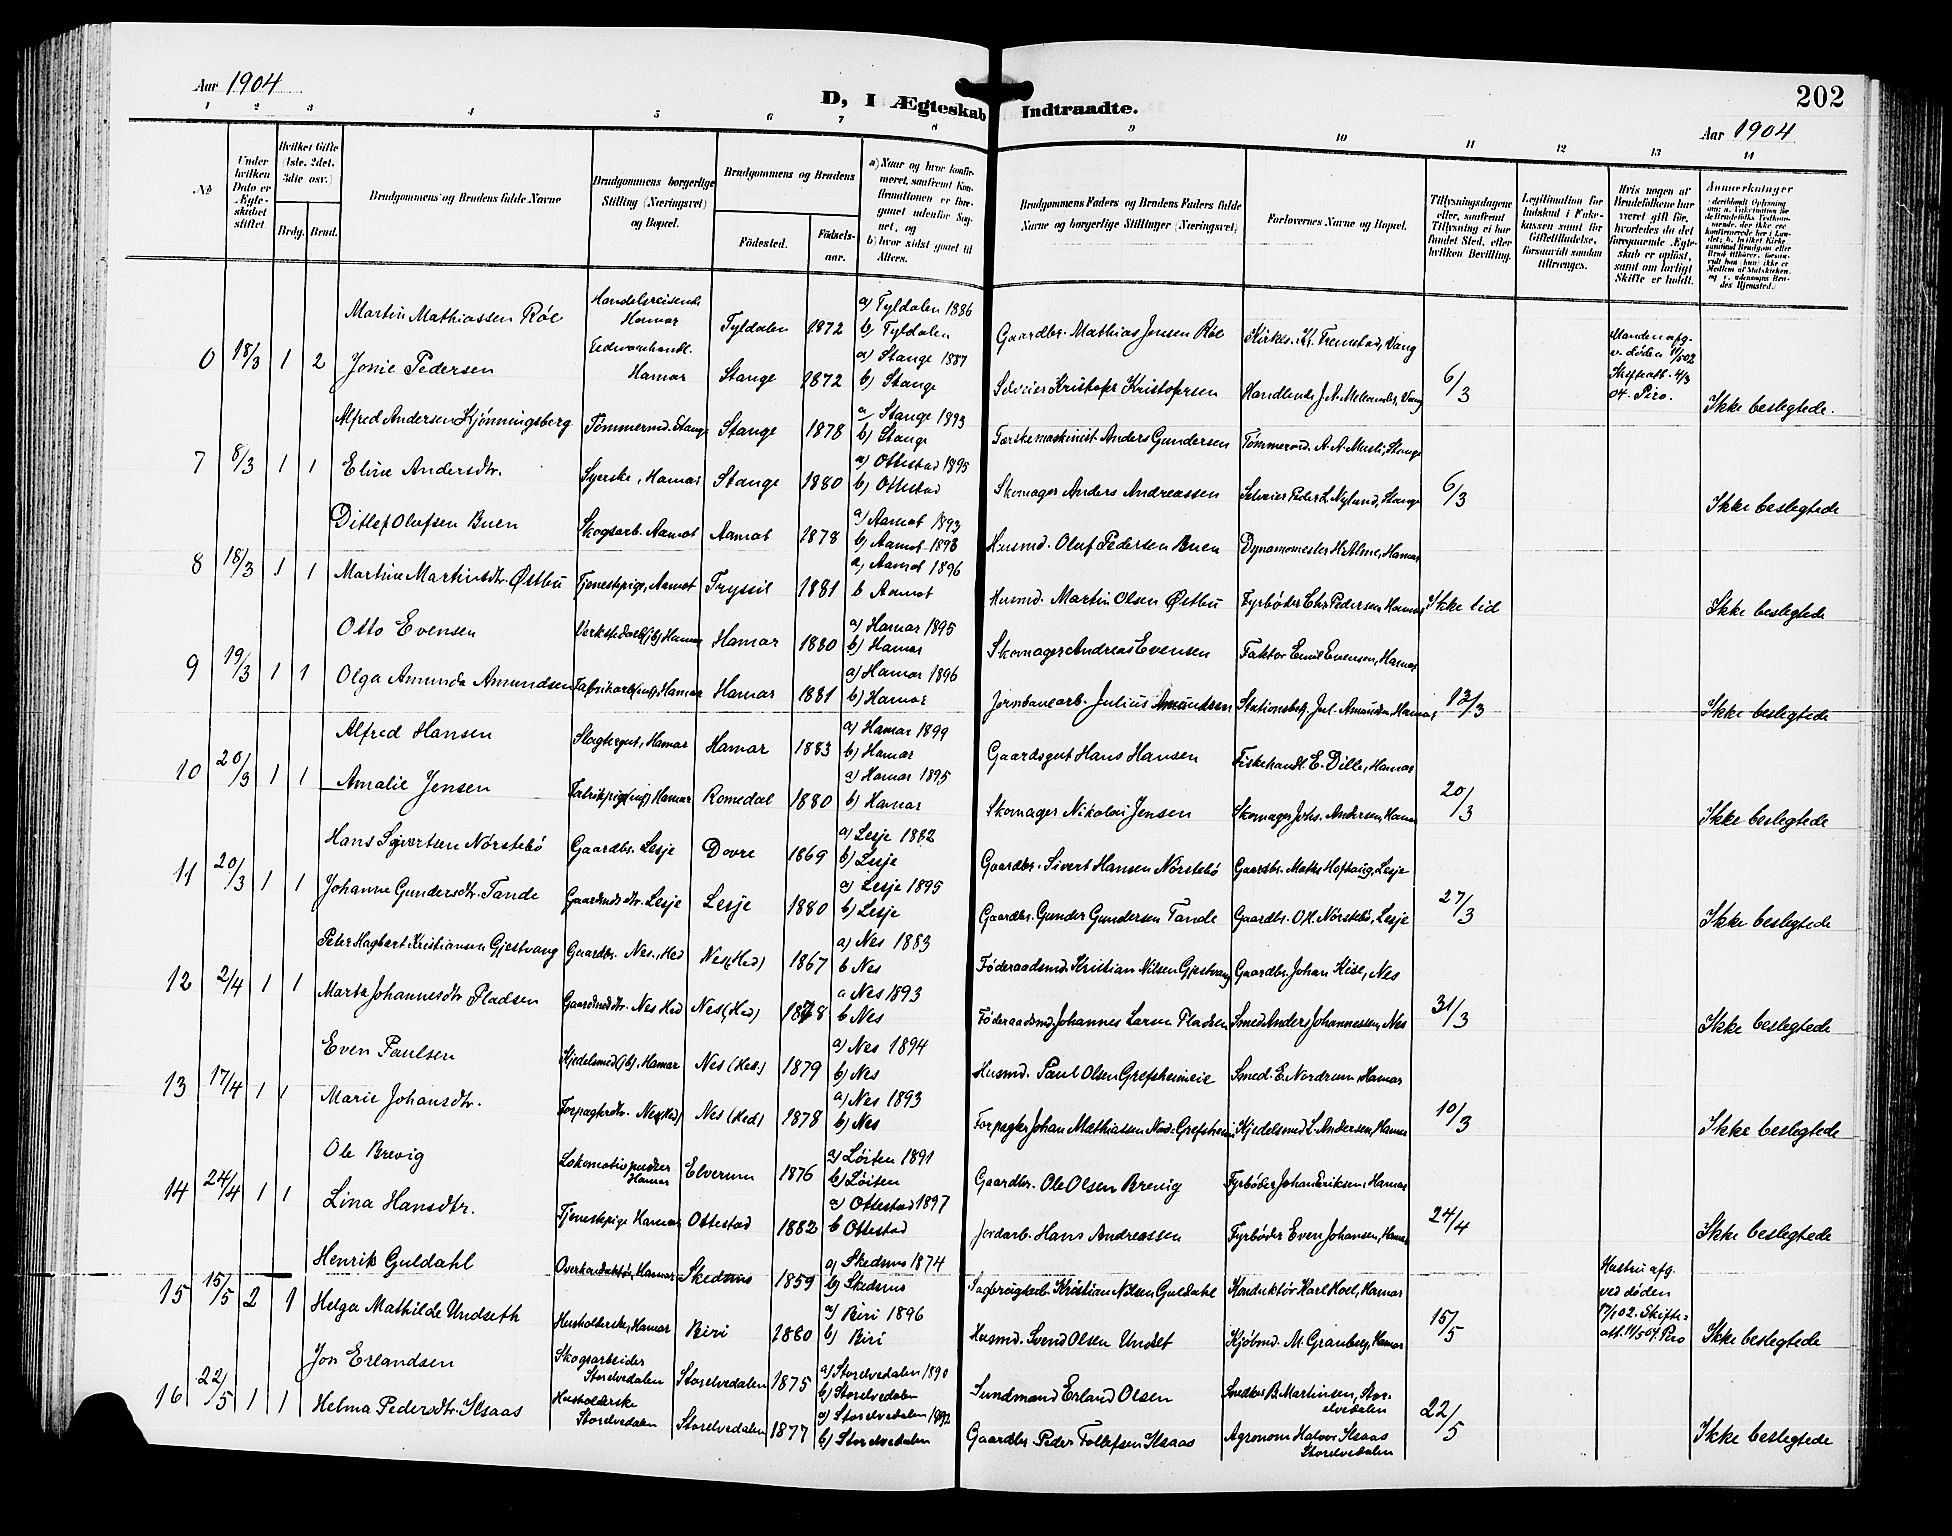 Aar 1904
202
D, I Ægteskab Indtraadte.
Aar 1904
1 2 3 4 5 6 7 8 9 10 11 12 13 14
№
Under hvilken Dato er Ægteskabet stiftet.
Hvilket Gifte (1ste, 2det, 3die osv.)
Brdg. Brud.
Brudgommens og Brudens fulde Navne
Brudgommens borgerlige Stilling (Næringsvei) og Bopæl.
Brudgommens og Brudens
Fødested.
Fødselsaar.
a) Naar og hvor konfirmeret, samfremt Konfirmationen er foregaaet udenfor Sognet, og
b) hvor sidst gaaet til Alters.
Brudgommens Faders og Brudens Faders fulde Navne og borgerlige Stillinger (Næringsvei)
Forlovernes Navne og Bopæl.
Tillysningsdagene eller, saafremt Tillysning ei har fundet Sted, efter hvilken Bevilling.
Lægitimation for Indskud i Enkekassen samt for Giftetilladelse, forsaavidt saadan tiltrænges.
Hvis nogen af Brudefolkene har været gift før, hvorledes da det foregaaende Ægteskab er opløst, samt om lovligt Skifte er holdt.
Anmærkninger
Martin Mathiassen Røe Handelsreisende Hamar Tyldalen 1872 a) Tyldalen 1886 b) Tyldalen Gaardbr. Mathias Jensen Røe Kirkes. Kr. Frenstad, Vang
6 18/3 1 2 Jonie Pedersen Hamar Stange 1872 a) Stange 1887 b) Stange Selveier Kristofer Kristofersen Handlende J. A. Melbye, Vang 6/3 Manden afg. v. døden 11/5 02 Skifteatt. 4/3 04. Piro. Ikke beslegtede.
Alfred Andersen Kjønningsberg Tømmermd. Stange Stange 1878 a) Stange 1893 b) Stange Tærskemaskinist Anders Gundersen Tømmermd. A. A. Musli, Stange
7 8/3 1 1 Eline Andersdtr. Syerske, Hamar Stange 1880 a) Ottestad 1895 b) Ottestad Skomager Anders Andreassen Selveier Peder L. Nyland, Stange 6/3 Ikke beslegtede
Ditlef Olufsen Buen Skogsarb. Aamot Aamot 1878 a) Aamot 1893 b) Aamot 1893 Husmd. Oluf Pedersen Buen Dynamomester H. Alme, Hamar
8 18/3 1 1 Martine Martinsdtr. Østbu Tjenestepige, Aamot Trysil 1881 a) Aamot 1896 b Aamot Husmd. Martin Olsen Østbu Fyrbøder Chr Pedersen Hamar Ikke tid Ikke beslegtede
Otto Evensen Verkstedarb. (jb) Hamar Hamar 1880 a) Hamar 1895 b) Hamar Skomager Andreas Evensen Faktor Emil Evensen, Hamar
9 19/3 1 1 Olga Amunda Amundsen Fabrikarb. Hamar Hamar 1881 a) Hamar 1896 b) Hamar Jernbanearb. Julius Amundsen Stationsbetj. Jul. Amundsen Hamar 13/3 Ikke beslegtede
Alfred Hansen Slagtergut, Hamar Hamar 1883 a) Hamar 1899 b) Hamar Gaardsgut Hans Hansen Fiskehandl. E. Dille, Hamar
10 20/3 1 1 Amalie Jensen Fabrikpige Hamar Romedal 1880 a) Hamar 1895 b) Hamar Skomager Nikolai Jensen Skomager Johs. Andersen, Hamar 20/3 Ikke beslegtede
Hans Sivertsen Nørstebø Gaardbr. Lesje Dovre 1869 a) Lesje 1882 b) Lesje Gaardbr. Sivert Hansen Nørstebø Gaardbr. Maths Hofhaug, Lesje
11 20/3 1 1 Johanne Gundersdtr. Tande Gaardmdsdtr. Lesje Lesje 1880 a) Lesje 1895 b) Lesje Gaardbr. Gunder Gundersen Tande Gaardbr. O.H. Nørstebø, Lesje 27/3 Ikke beslegtede
Peter Hagbart Kristiansen Gjestvang Gaardbr. Nes, Hed Nes (Hed) 1867 a) Nes 1883 b Nes Føderaadsmd. Kristian Nilsen Gjestvang Gaardbr. Johan Kise, Nes
12 2/4 1 1 Marta Johannesdtr. Pladsen Gaardmdsdtr. Nes Hed Nes (Hed) 1878 a Nes 1893 b Nes Føderaadsmd. Johannes Larsen Pladsen Smed Anders Johannessen, Nes 31/3 Ikke beslegtede
Even Paulsen Kjedelsmed (jb), Hamar Nes (Hed.) 1879 a) Nes 1894 b) Nes Husmd. Paul Olsen Grefsheimeie Smed. E. Nordrum, Hamar
13 17/4 1 1 Marie Johansdtr. Forpagterdtr. Nes (Hed) Nes (Hed) 1878 a) Nes 1893 b) Nes Forpagter Johan Mathiassen Nord-Grefsheim Kjedelsmed L. Andersen, Hamar 10/3 Ikke beslegtede
Ole Brevig Lokomotivpudser Hamar Elverum 1876 a) Løiten 1891 b) Løiten Gaardbr. Ole Olsen Brevig Fyrbøder Johan Eriksen, Hamar
14 24/4 1 1 Lina Hansdtr. Tjenestepige Hamar Ottestad 1882 a) Ottestad 1897 b Ottestad Jordarb. Hans Andreassen Fyrbøder Even Johansen, Hamar 24/4 Ikke beslegtede
Henrik Guldahl Overkonduktør, Hamar Skedsmo 1859 a) Skedsmo 1874 b) Skedsmo Sagbrugsarb. Kristian Nilsen Guldahl Konduktør Karl Hoel, Hamar
15 15/5 2 1 Helga Mathilde Undseth Husholderske, Hamar Biri 1880 a) Biri 1896 b) Biri Husmd. Svend Olsen Undset Kjøbmd. M. Granberg, Hamar 15/5 Hustru afg. ved døden 17/1 02. Skifteatt. 11/5 04. Piro Ikke beslegtede
Jon Erlandsen Skogsarbeider Storelvedalen Storelvedalen 1875 a) Storelvedalen 1890 b) Storelvedalen Sundmand Erland Olsen Snedker B. Martinsen, Storelvedalen
16 22/5 1 1 Helma Pedersdtr. Ilsaas Husholderske Storelvedalen Storelvedalen 1877 a) Storelvedalen 1892 b) Storelvedalen Gaardbr. Peder Tollefsen Ilsaas Agronom Halvor Ilsaas Storelvedalen 22/5 Ikke beslegtede